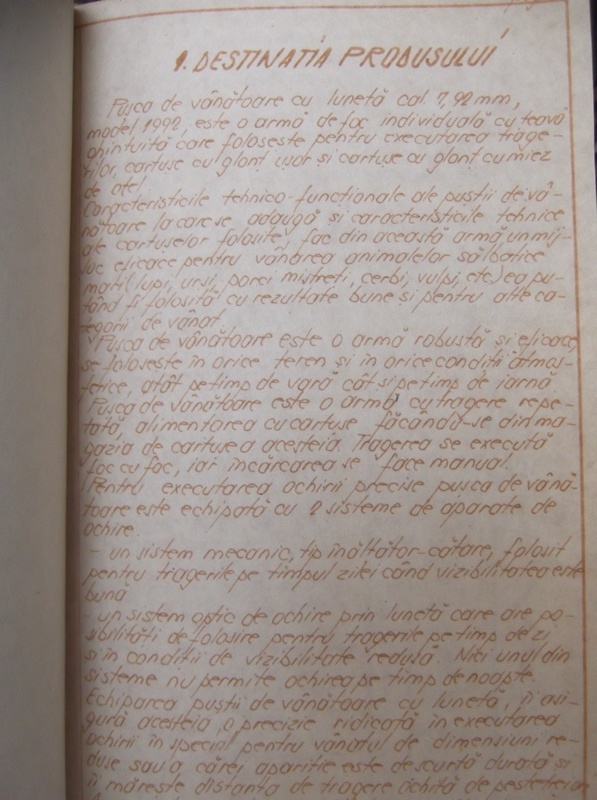 1. DESTINAȚIA PRODUSULUI
Pușca de vânătoare cu lunetă cal. 7,92 mm,
model 1992, este o armă de foc individuală cu țeavă
ghintuită care folosește pentru executarea trage-
rilor, cartușe cu glonț ușor și cartușe cu glonț cu miez
de oțel.
Caracteristicile tehnico-funcționale ale puștii de vâ-
nătoare la care se adaugă și caracteristicile tehnice
ale cartușelor folosite, fac din această armă un mij-
loc eficace pentru vânarea animalelor sălbatice
mari (lupi, urși, porci mistreți, cerbi, vulpi, etc.) ea pu-
tând fi folosită cu rezultate bune și pentru alte ca-
tegorii de vânat.
Pușca de vânătoare este o armă robustă și eficace,
se folosește în orice teren și în orice condiții atmos-
ferice, atât pe timp de vară cât și pe timp de iarnă.
Pușca de vânătoare este o armă cu tragere repe-
tată, alimentarea cu cartușe făcându-se din ma-
gazia de cartușe a acesteia. Tragerea se execută
foc cu foc, iar încărcarea se face manual.
Pentru executarea ochirii precise pușca de vână-
toare este echipată cu 2 sisteme de aparate de
ochire.
- un sistem mecanic, tip înălțător-cătare, folosit
pentru tragerile pe timpul zilei când vizibilitatea este
bună
- un sistem optic de ochire prin lunetă care are po-
sibilități de folosire pentru tragerile pe timp de zi
și în condiții de vizibilitate redusă. Nici unul din
sisteme nu permite ochirea pe timp de noapte.
Echiparea puștii de vânătoare cu lunetă, îi asi-
gură acesteia o precizie ridicată în executarea
ochirii în special pentru vânatul de dimensiuni re-
duse sau a cărei apariție este de scurtă durată și
îi mărește distanța de tragere ochită de peste